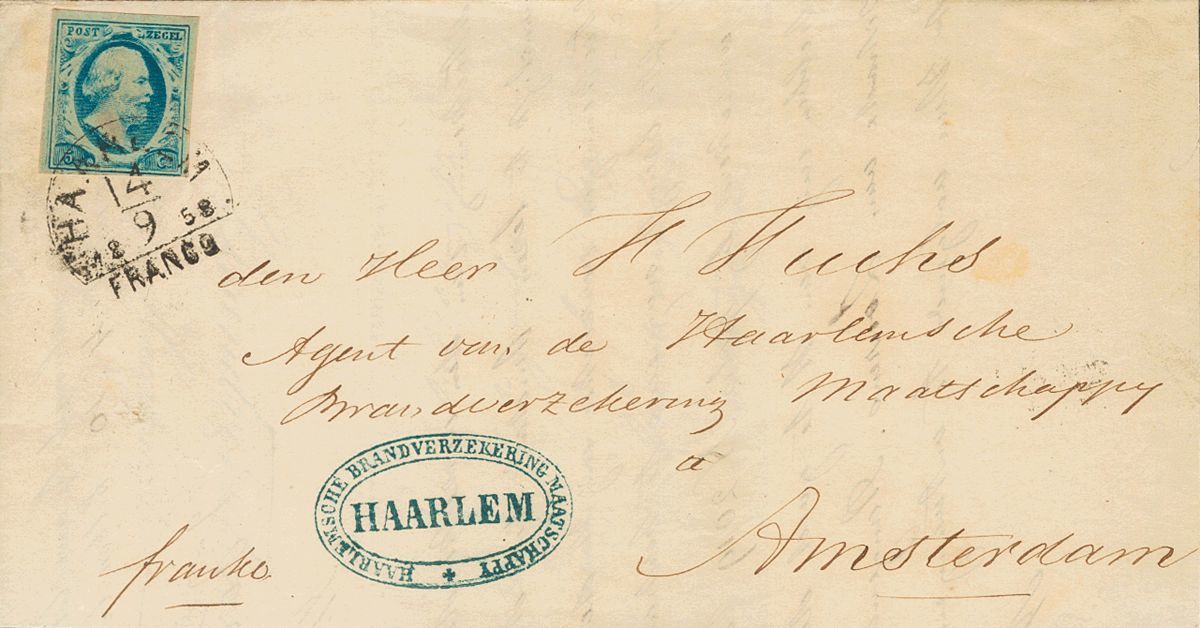 POST ZEGEL
5 5
HAARLEM
4
9
18 58.
FRANCO
den Heer H Fuchs
Agent van de Haarlemsche
Brandverzekering Maatschappy
a
Amsterdam
HAARLEMSCHE BRANDVERZEKERING MAATSCHAPPY
HAARLEM
franko.